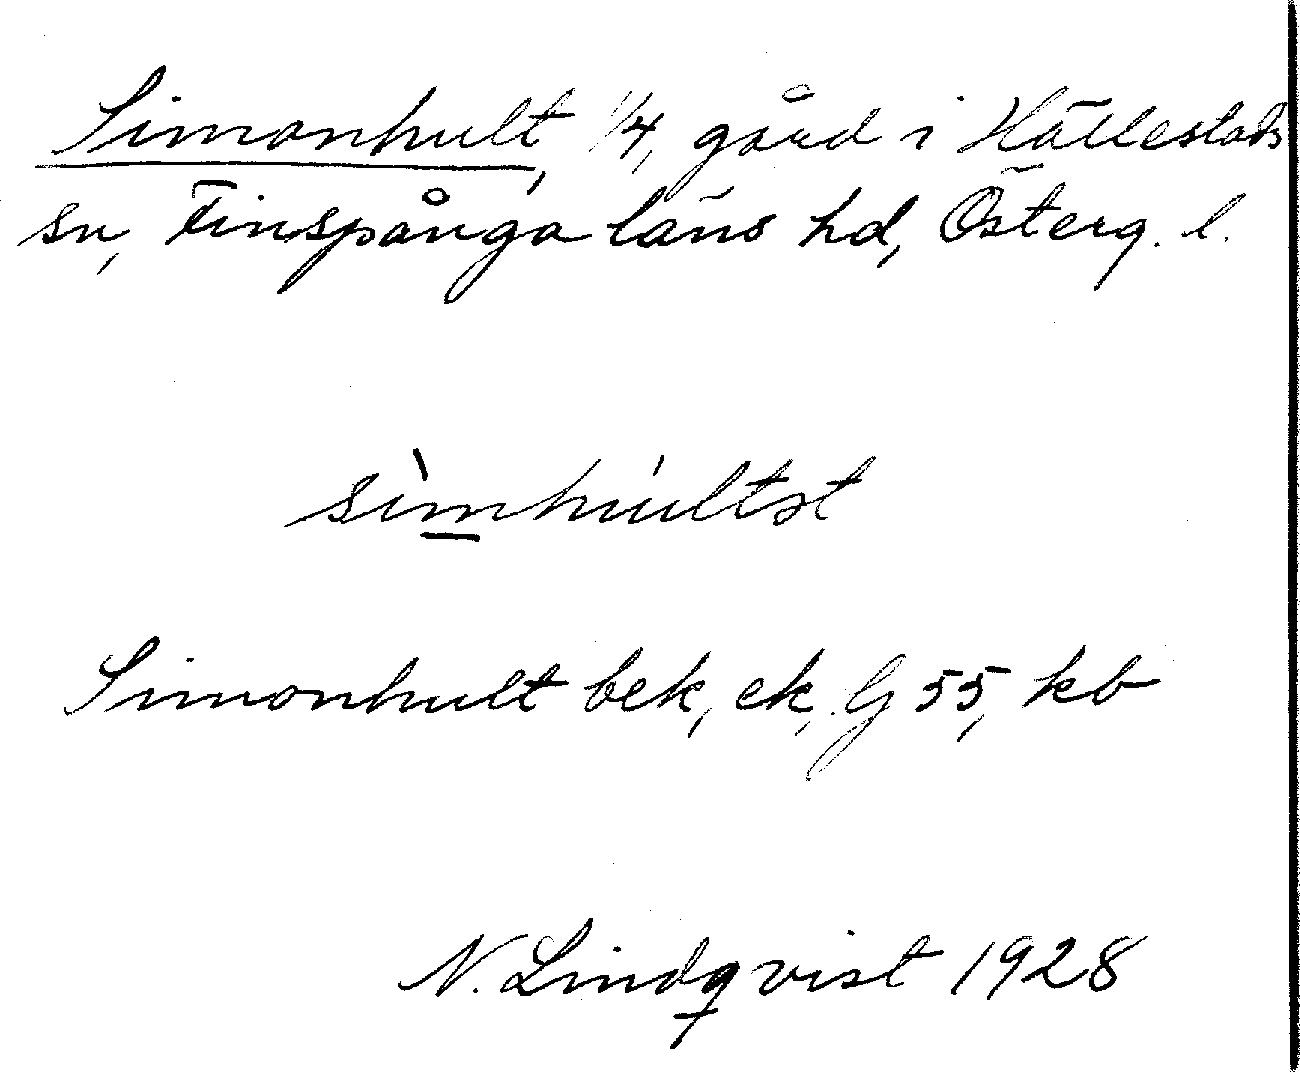 Simonhult, 1/4, gård i Hällestads
sn, Finspånga läns hd, Österg. l.
sìmhúltst
Simonhult bek, ek, G 55, kb
N. Lindqvist 1928